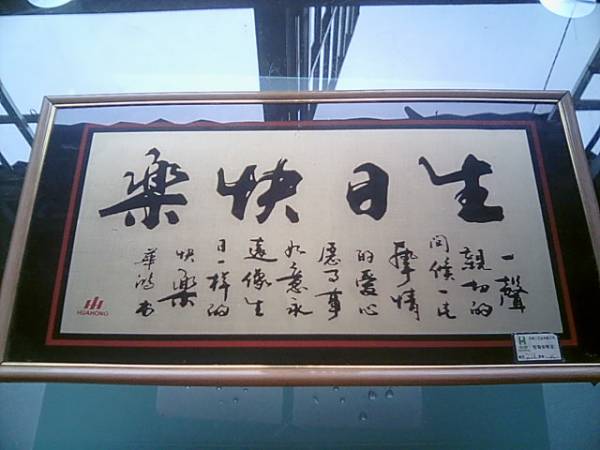 生日快樂
一聲
親切的
问候一片
摯情
的爱心
愿万事
如意永
遠像生
日一样的
快樂
華鸿书
HUAHONG